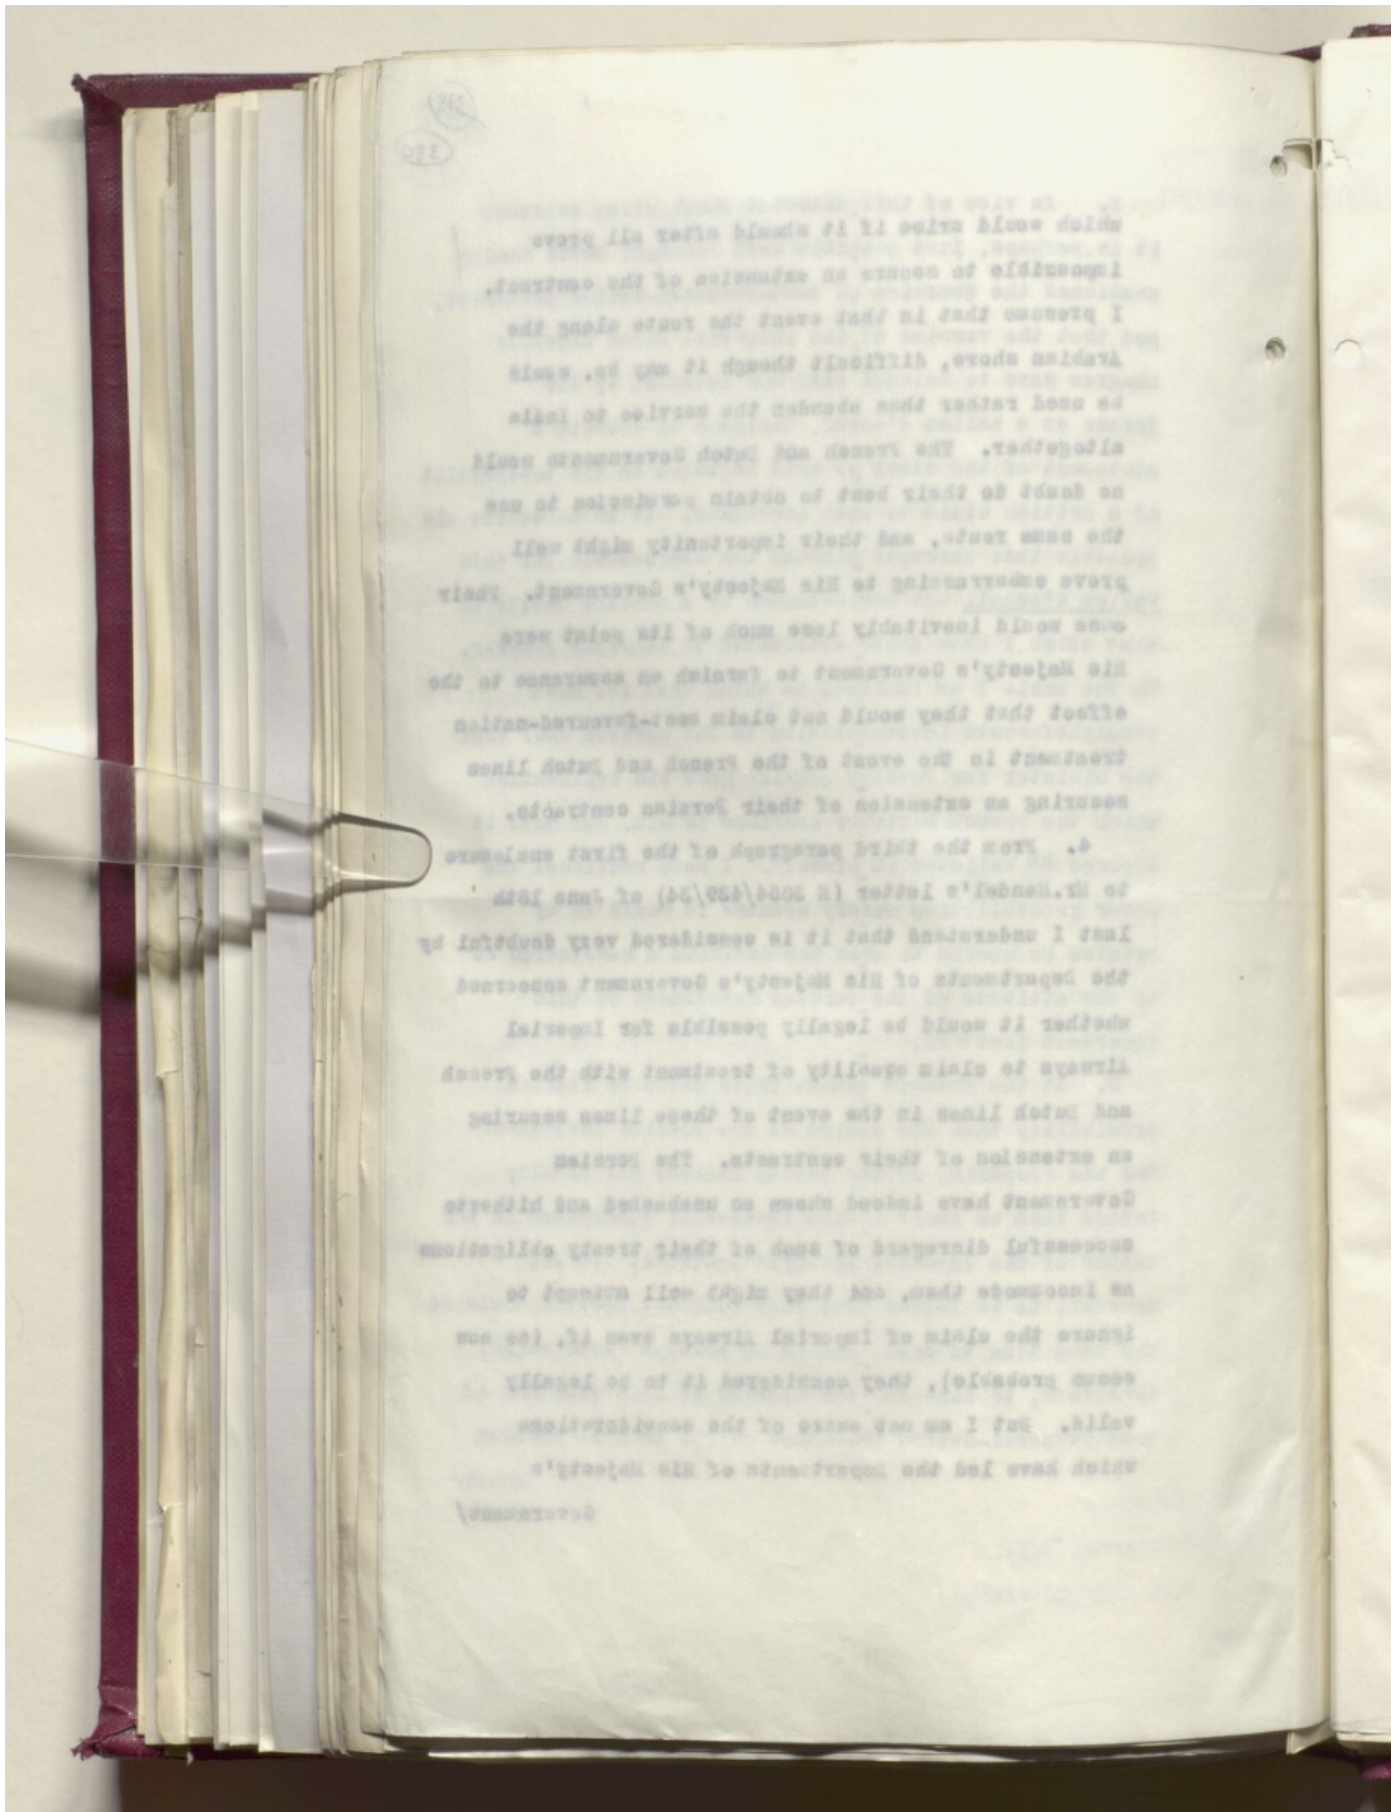 which would arise if it should after all prove
impossible to secure an extension of the contract.
I presume that in that event the route along the
Arabian shore, difficult though it may be, would
be used rather than abandon the service to India
altogether. The French and Dutch Governments would
no doubt do their best to obtain permission to use
the same route, and their importunity might well
prove embarrassing to His Majesty's Government. Their
case would inevitably lose much of its point were
His Majesty's Government to furnish an assurance to the
effect that they would not claim most-favoured-nation
treatment in the event of the French and Dutch lines
securing an extension of their Persian contracts.
4. From the third paragraph of the first enclosure
to Mr. Rendel's letter (E 3084/439/34) of June 18th
last I understand that it is considered very doubtful by
the Departments of His Majesty's Government concerned
whether it would be legally possible for Imperial
Airways to claim equality of treatment with the French
and Dutch lines in the event of these lines securing
an extension of their contracts. The Persian
Government have indeed shown an unabashed and hitherto
successful disregard of such of their treaty obligations
as incommode them, and they might well attempt to
ignore the claim of Imperial Airways even if, (as now
seems probable), they considered it to be legally
valid. But I am not aware of the considerations
which have led the Departments of His Majesty's
Government/